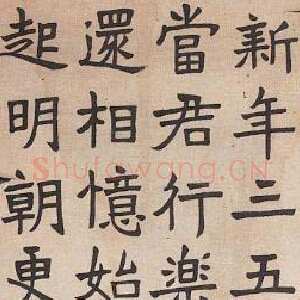 新年三五
當君行樂
還相憶始
起明朝更
Shufawang.CN